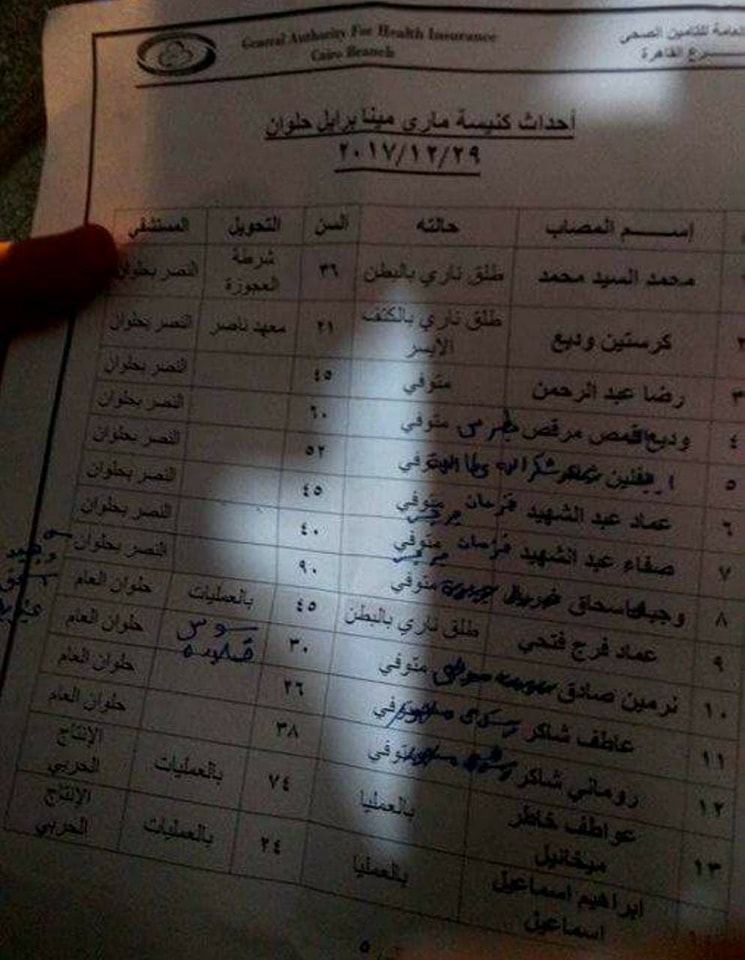 General Authority For Health Insurance
Cairo Branch
العامة للتامين الصحى
ـرع القاهرة
أحداث كنيسة مارى مينا برايل حلوان
٢٠١٧/١٢/٢٩
إســـم المصاب حالته السن التحويل المستشفي
محمد السيد محمد طلق ناري بالبطن ٣٦ شرطة العجوزة النصر بحلوان
٢ كرستين وديع طلق ناري بالكتف الايسر ٢١ معهد ناصر النصر بحلوان
٣ رضا عبد الرحمن متوفي ٤٥ النصر بحلوان
٤ وديع القمص مرقص متوفي ٦٠ النصر بحلوان
٥ ايفلين متوفي ٥٢ النصر بحلوان
٦ عماد عبد الشهيد متوفي ٤٥ النصر بحلوان
٧ صفاء عبد الشهيد متوفي ٤٠ النصر بحلوان
٨ اسحاق متوفي ٩٠ النصر بحلوان
٩ عماد فرج فتحي طلق ناري بالبطن ٤٥ بالعمليات حلوان العام
١٠ نرمين صادق متوفي ٣٠ حلوان العام
١١ عاطف شاكر متوفي ٢٦ حلوان العام
١٢ روماني شاكر متوفي ٣٨ حلوان العام
١٣ عواطف خاطر ميخائيل بالعمليا ٧٤ بالعمليات الإنتاج الحربي
ابراهيم اسماعيل اسماعيل بالعمليا ٢٤ بالعمليات الإنتاج الحربي